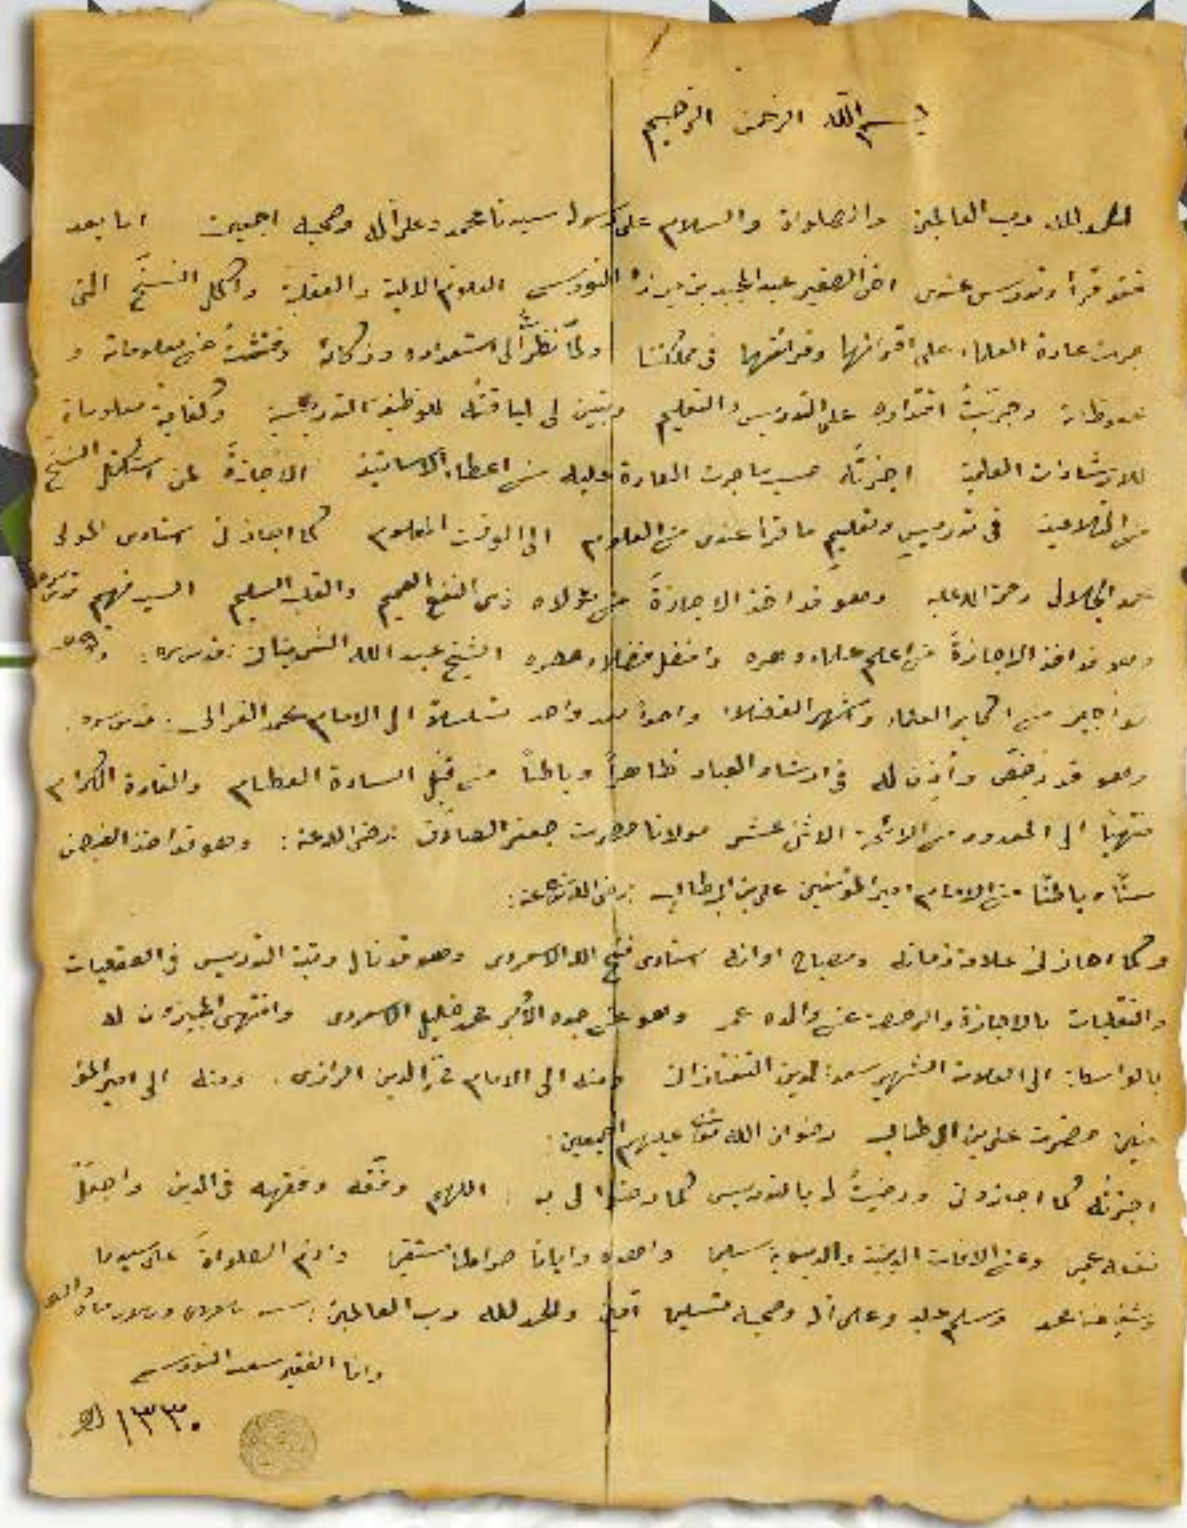 بسم الله الرحمن الرحيم
الحمد لله رب العالمين والصلوات والسلام على رسول سيدنا محمد وعلى آله وصحبه اجمعين اما بعد
فقد قرأ وتدرس عندى اخى الصغير عبد المجيد بن ميرزا النورسى العلوم الالية والعقلية واكمل النسخ التى
جرت عادة العلماء على اقرائها وقرائتها فى مملكتنا ولما نظرت الى استعداده وذكائه وفتشت عن معلوماته و
وجربت اقتداره على التدريس والتعليم وتبين لى لياقته للوظيفة التدريسية وكفاية معلوماته
للارشادات العلمية اجزته حسب ما جرت العادة عليه من اعطاء الاساتيذ الاجازة لمن استكمل النسخ
من التلاميذ فى تدريس وتعليم ما قرأ عندى من العلوم الى الوقت المعلوم كما اجازنى استادى المولى
محمد الجلالى رحمة الله عليه وهو قد اخذ الاجازة من مولاه ذى النفع العميم والقلب السليم السيد فهيم قدس سره
وهو قد اخذ الاجازة من اعلم علماء دهره وافضل فضلاء عصره الشيخ عبد الله قدس سره
من اكابر العلماء واشهر الفضلاء واحدا بعد واحد متسلسلا الى الامام محمد الغزالى قدس سره
وهو قد رخص وأذن له فى ارشاد العباد ظاهرا وباطنا من قبل السادة العظام والقادة الكرام
منتهيا الى المعدود من الائمة الاثنى عشر مولانا حضرت جعفر الصادق رضى الله عنه وهو قد اخذ الفيض
وباطنا من الامام امير المؤمنين على بن ابى طالب رضى الله عنه
وكما اجازنى علامة زمانه ومصباح اوانه استادى فتح الله الاسعردى وهو قد نال رتبة التدريس فى العقليات
والنقليات بالاجازة والرخصة عن والده عمر وهو عن جده الأكبر محمد خليل الاسعردى وانتهى المجيزون له
بالواسطة الى العلامة الشهير سعد الدين التفتازانى ومنه الى الامام فخر الدين الرازى ومنه الى امير المؤ
منين حضرت على بن ابى طالب رضوان الله تعالى عليهم اجمعين
اجزته كما اجازونى ورضيت له بالتدريس كما رضوا لى به اللهم وفقه وفقهه فى الدين واجعل
وعن الافات الدينية والدنيوية سليما واهده وايانا صراطا مستقيما وادم الصلواة على سيدنا
وشفيعنا محمد وسلم عليه وعلى آله وصحبه تسليما آمين والحمد لله رب العالمين
وانا الفقير سعيد النورسى
١٣٣٠